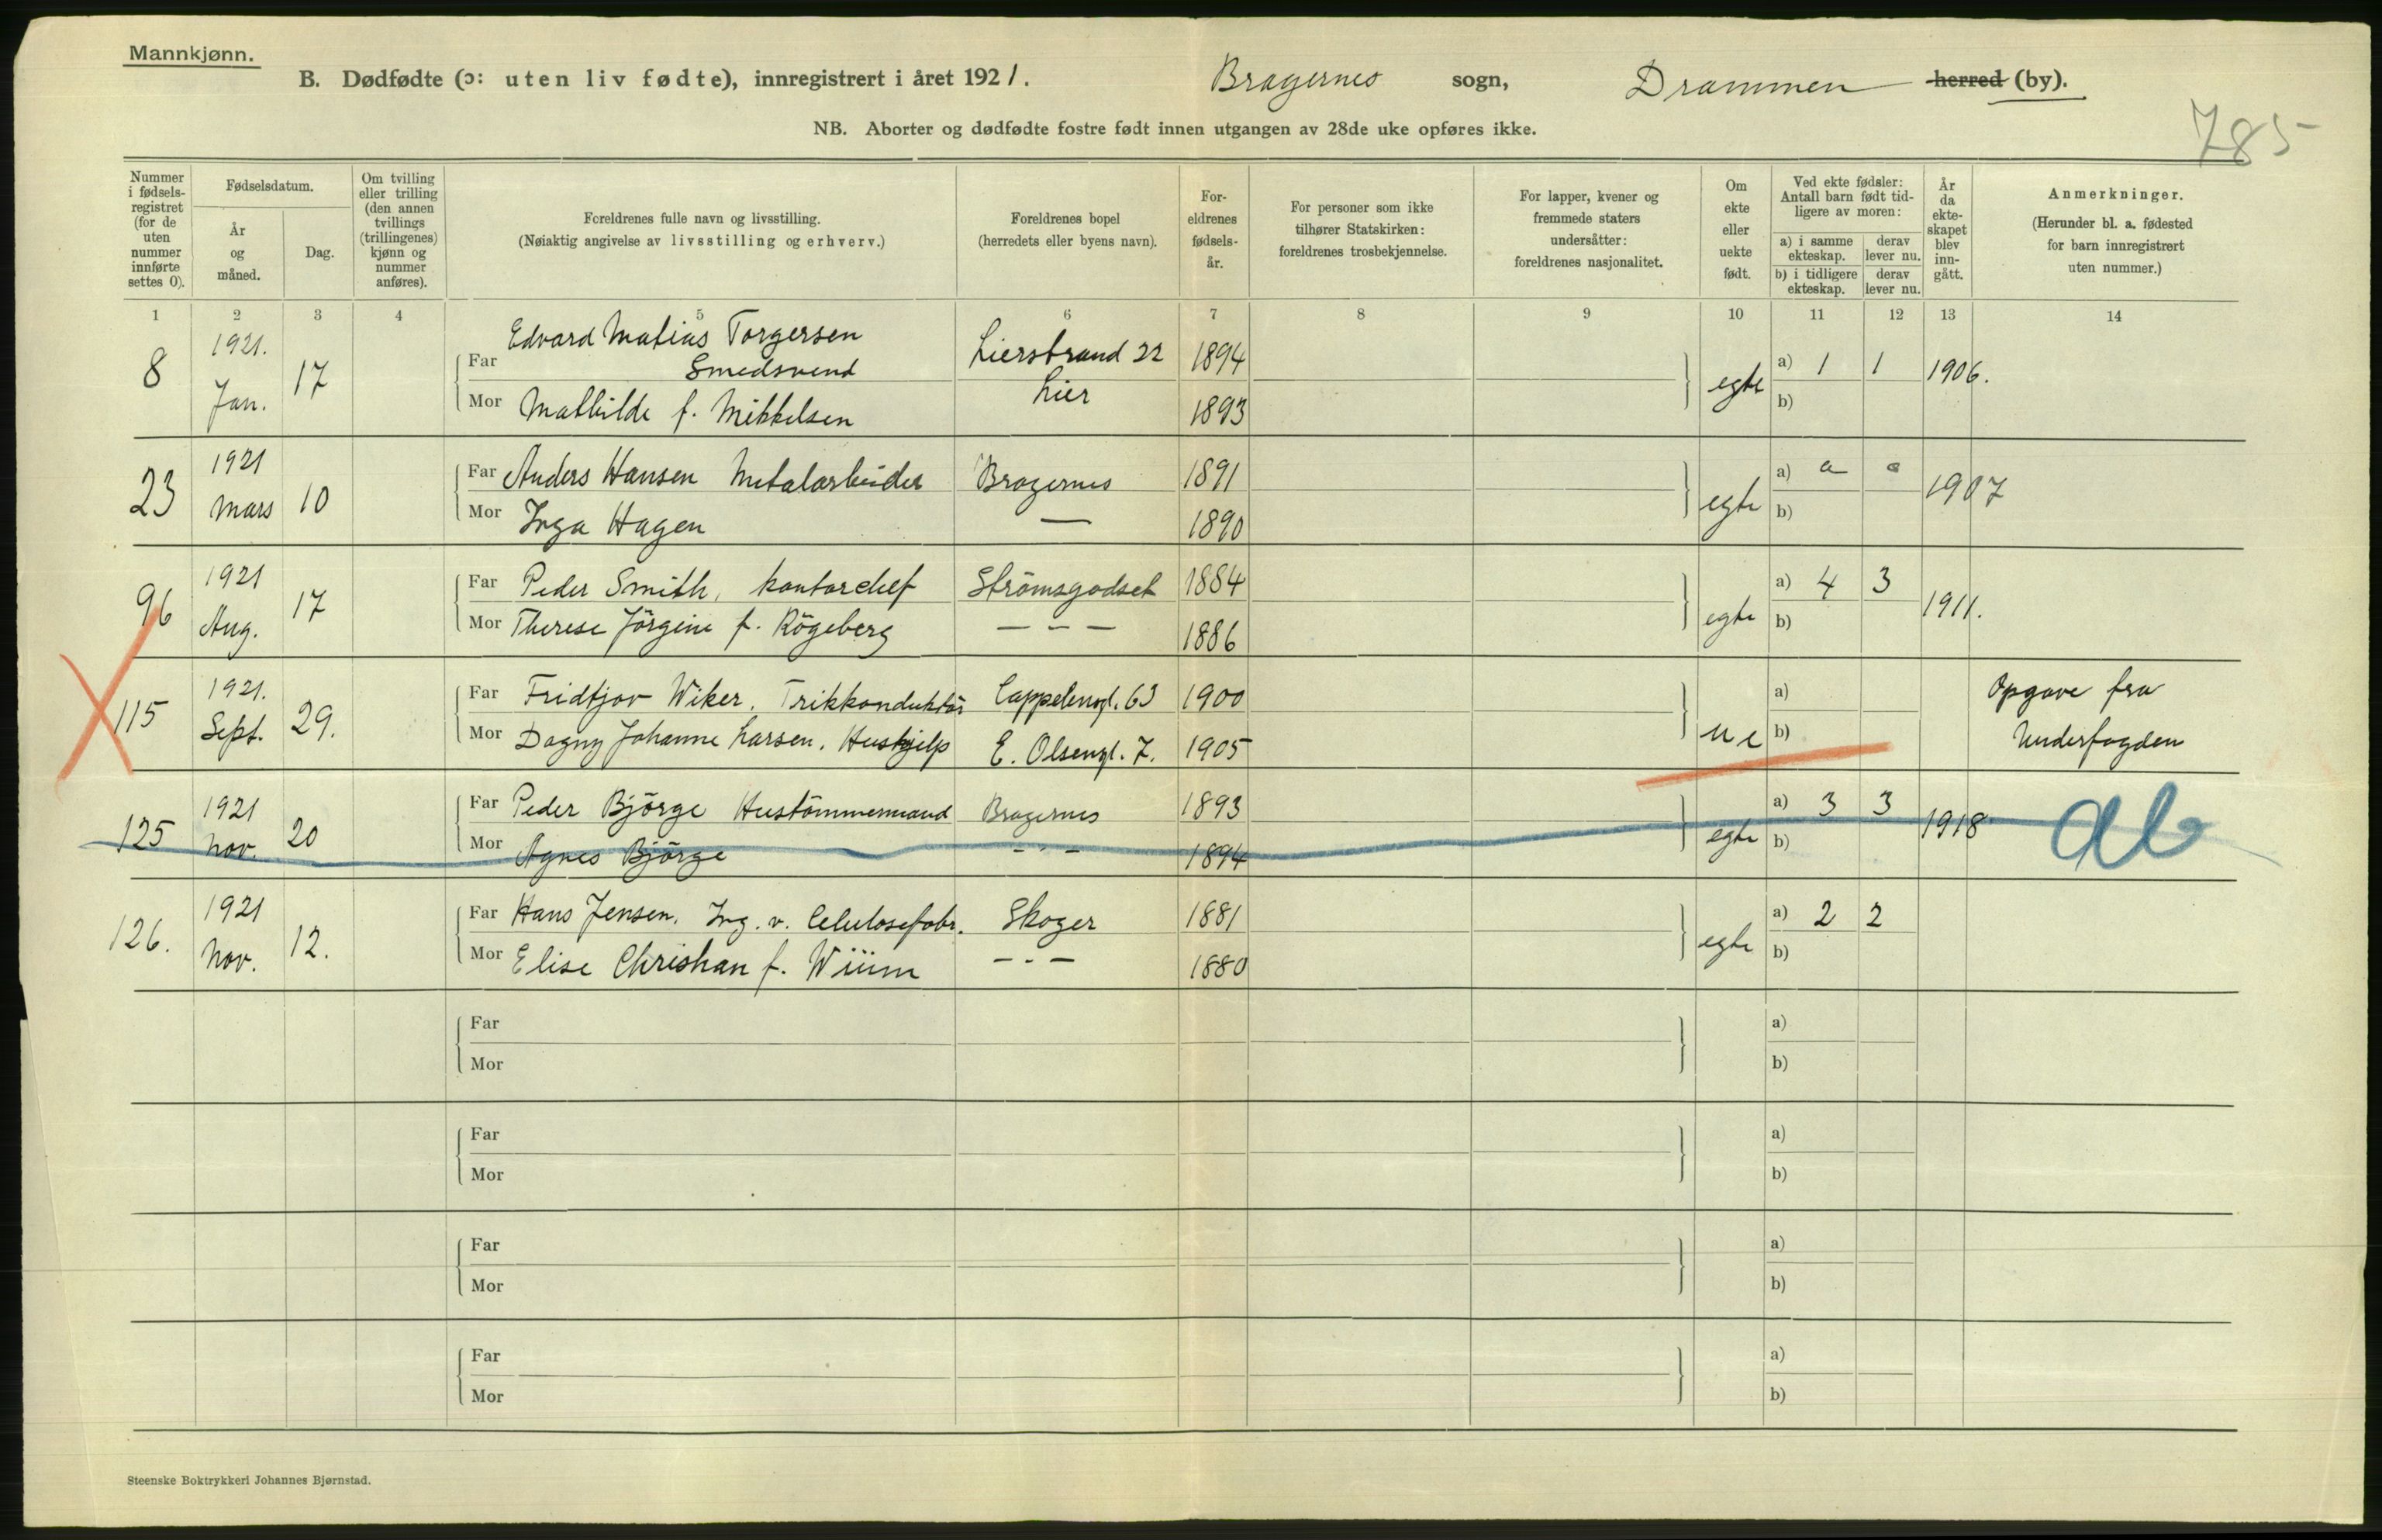 Mannkjønn.
B. Dødfødte (ɔ: uten liv fødte), innregistrert i året 1921. Bragernes sogn, Drammen herred (by).
785
NB. Aborter og dødfødte fostre født innen utgangen av 28de uke opføres ikke.
Nummer i fødsels-registret (for de uten nummer innførte settes 0).
Fødselsdatum.
År og måned.
Dag.
Om tvilling eller trilling (den annen tvillings (trillingenes) kjønn og nummer anføres).
Foreldrenes fulle navn og livsstilling.
(Nøiaktig angivelse av livsstilling og erhverv.)
Foreldrenes bopel
(herredets eller byens navn).
For-eldrenes fødsels-år.
For personer som ikke tilhører Statskirken: foreldrenes trosbekjennelse.
For lapper, kvener og fremmede staters undersåtter: foreldrenes nasjonalitet.
Om ekte eller uekte født.
Ved ekte fødsler: Antall barn født tid-ligere av moren:
a) i samme ekteskap. derav lever nu.
b) i tidligere ekteskap. derav lever nu.
År da ekte-skapet blev inn-gått.
Anmerkninger.
(Herunder bl. a. fødested for barn innregistrert uten nummer.)
1 2 3 4 5 6 7 8 9 10 11 12 13 14
8 1921. Jan. 17
Far Edvard Matias Torgersen Smedsvend Lierstrand 22 1894 egte a) 1 1 1906.
Mor Mathilde f. Mikkelsen Lier 1893 b)
23 1921 Mars 10
Far Anders Hansen Metalarbeider Bragernes 1891 egte a) 1907
Mor Inga Hagen — 1890 b)
96 1921 Aug. 17
Far Peder Smith, kontorchef Strömsgodset 1884 egte a) 4 3 1911.
Mor Therese Jörgine f. Rögeberg — — — 1886 b)
115 1921. Sept. 29.
Far Fridtjov Wiker. Trikkonduktör Cappelensgt. 63 1900 ue a) Opgave fra
Mor Dagny Johanne Larsen. Hushjelp E. Olsensgt. 7. 1905 b) Underfogden
125 1921 Nov. 20
Far Peder Björge Hustömmermand Bragernes 1893 egte a) 3 3 1918 ab
Mor Agnes Björge — - — 1894 b)
126. 1921 Nov. 12.
Far Hans Jensen. Ing. v. Celulosefabr. Skoger 1881 egte a) 2 2
Mor Elise Christian f. Wiium — - — 1880 b)
Far a)
Mor b)
Far a)
Mor b)
Far a)
Mor b)
Far a)
Mor b)
Steenske Boktrykkeri Johannes Bjørnstad.